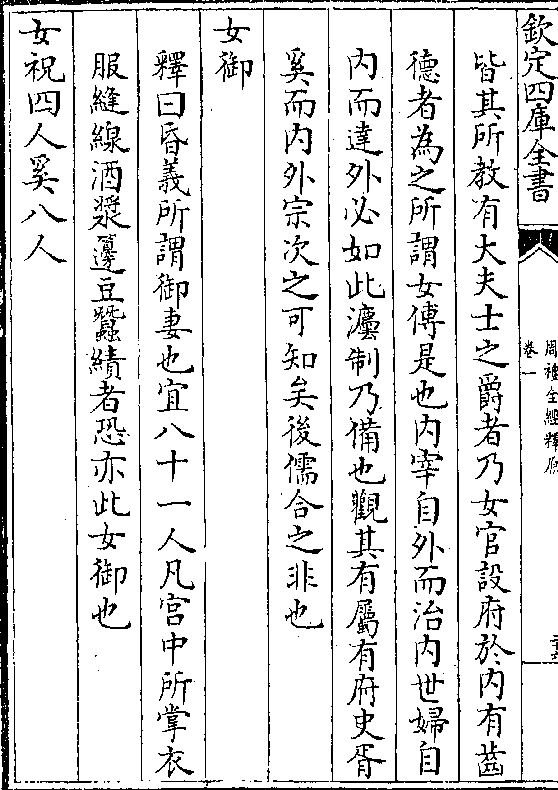 欽定四庫全書
周禮全經釋原
卷一
皆其所教有大夫士之爵者乃女官設府於内有齒
德者為之所謂女傅是也内宰自外而治内世婦自
内而達外必如此灋制乃備也觀其有屬有府史胥
奚而内外宗次之可知矣後儒合之非也
女御
釋曰昏義所謂御妻也宜八十一人凡宫中所掌衣
服縫線酒漿籩豆蠶績者恐亦此女御也
女祝四人奚八人